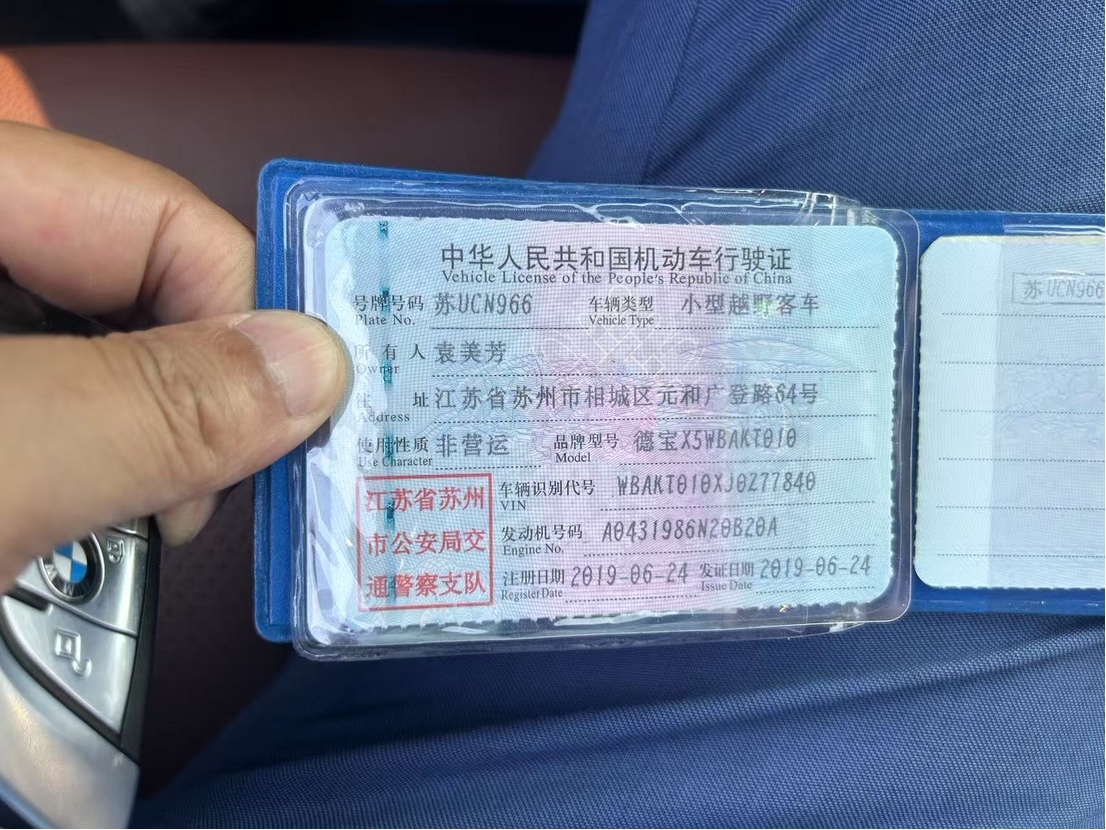 中华人民共和国机动车行驶证
Vehicle License of the People's Republic of China
号牌号码 苏UCN966 车辆类型 小型越野客车
Plate No. Vehicle Type
所有人 袁美芳
Owner
住址 江苏省苏州市相城区元和广登路64号
Address
使用性质 非营运 品牌型号 德宝X5WBAKT010
Use Character Model
江苏省苏州
市公安局交
通警察支队
车辆识别代号 WBAKT010XJ0Z77840
VIN
发动机号码 A0431986N20B20A
Engine No.
注册日期 2019-06-24 发证日期 2019-06-24
Register Date Issue Date
苏UCN966